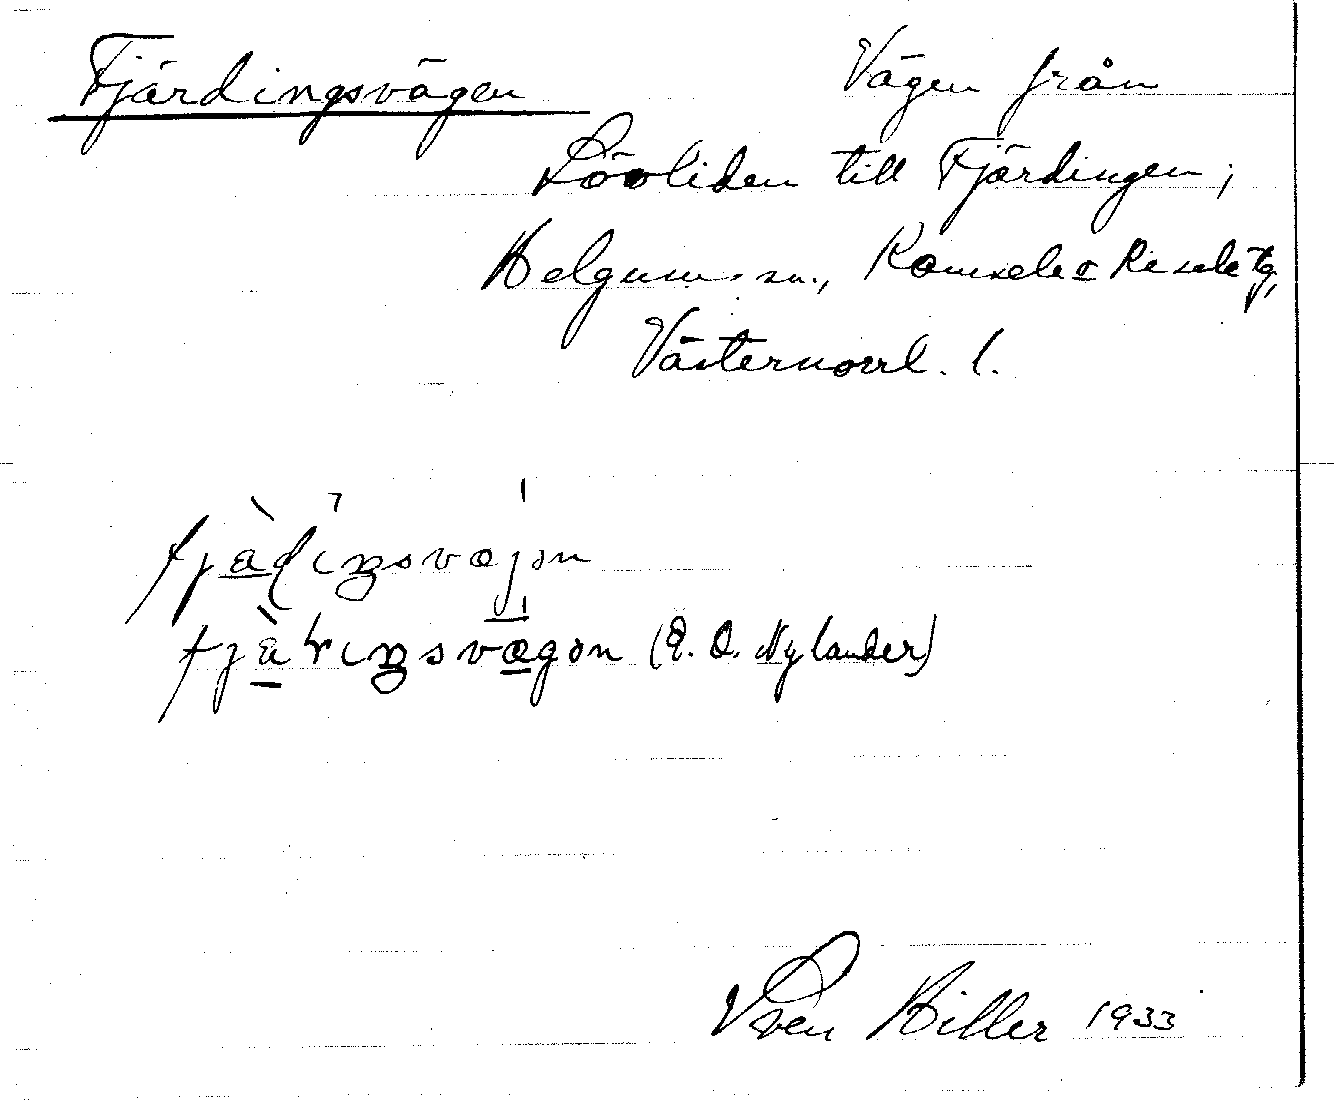 Fjärdingsvägen
Vägen från
Lövliden till Fjärdingen,
Helgums sn., Ramsele o Resele tg,
Västernorrl. l.
fjàḍiŋsvæjən
fjàriŋsvægən (E. O. Nylander)
Sven Hiller 1933